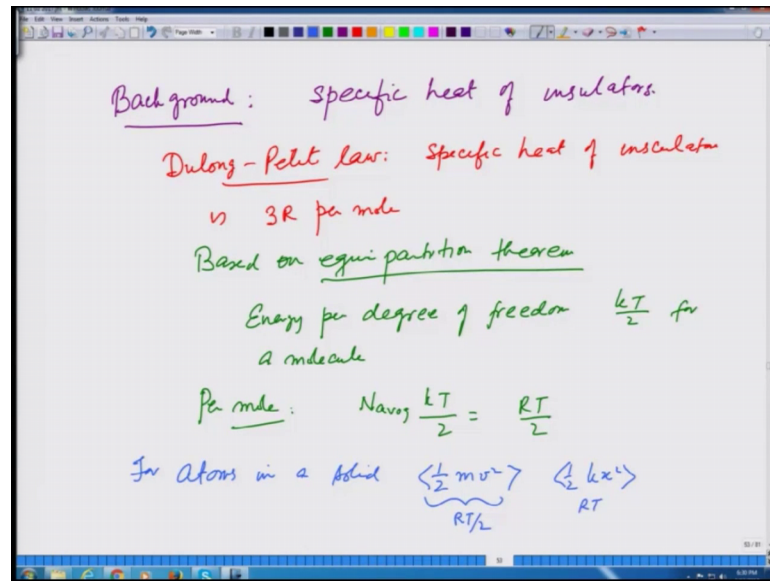 File Edit View Insert Actions Tools Help
Page Width
Background: Specific heat of insulators.
Dulong-Petit law: Specific heat of insulator
is 3R per mole
Based on equipartition theorem
Energy per degree of freedom kT/2 for
a molecule
Per mole: Navog kT/2 = RT/2
For atoms in a solid <1/2 mv²> <1/2 kx²>
RT/2 RT
53 / 81
53
6:30 PM